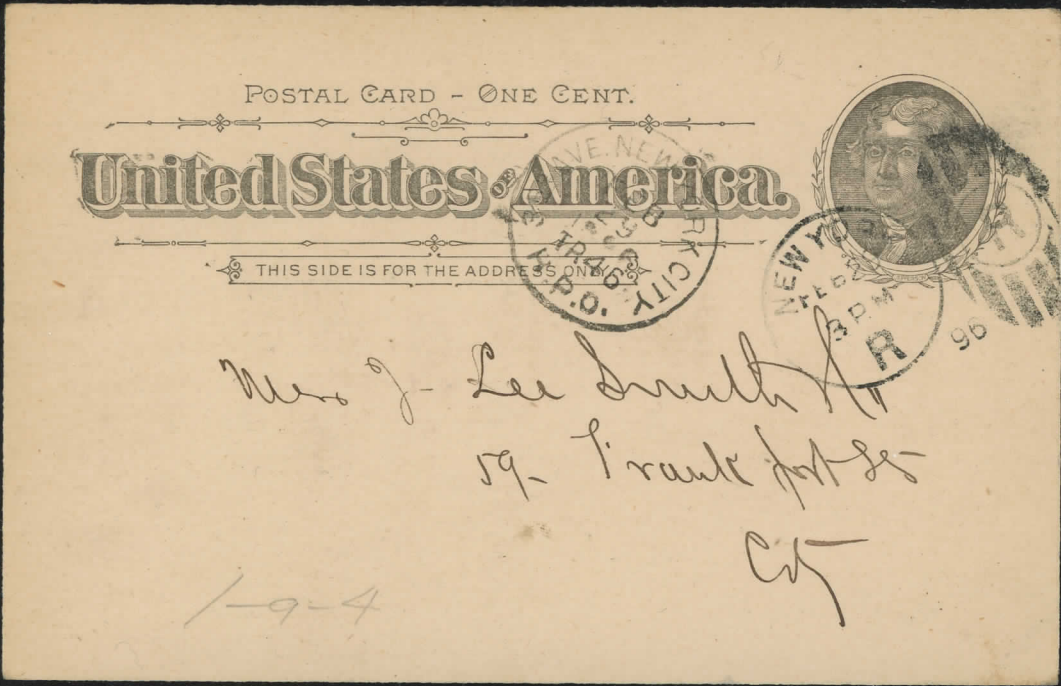 POSTAL CARD - ONE CENT.
United States of America.
THIS SIDE IS FOR THE ADDRESS ONLY.
3D AVE. NEW YORK CITY
TR 46
R.P.O.
NEW YORK
FEB
3 PM
R
96
Mess J- Lee Smith
59- Frankfort St
City
1-9-4